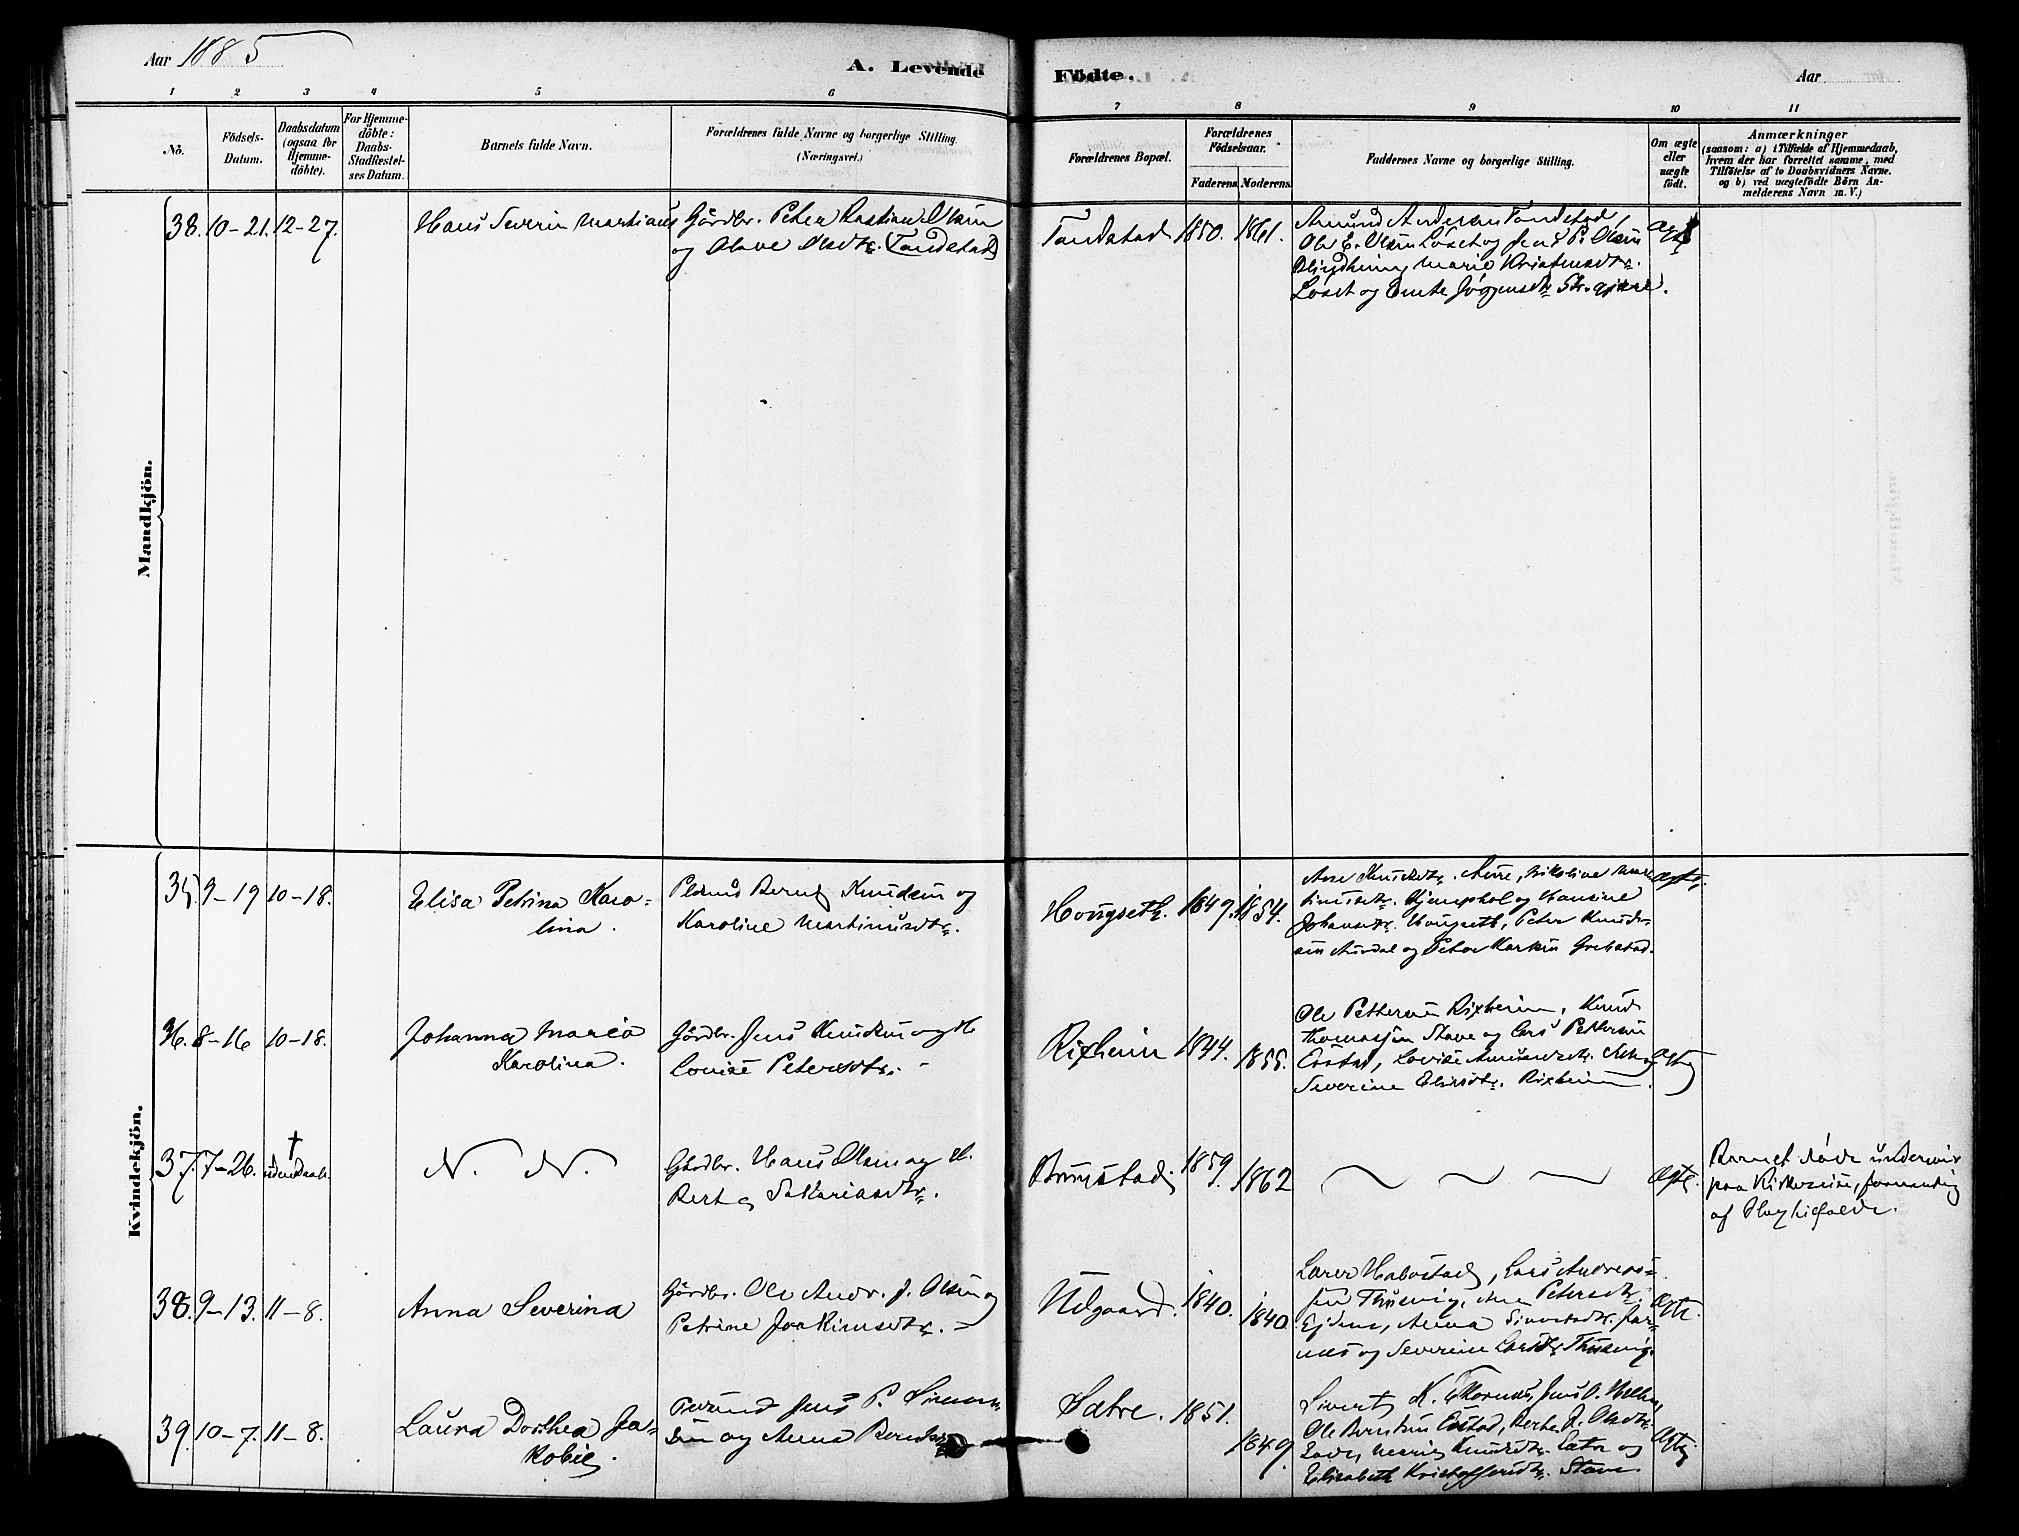 Aar 1885
A. Levende Födte.
Aar
1 2 3 4 5 6 7 8 9 10 11
No.
Födsels-
Datum.
Daabsdatum
(ogsaa for
Hjemme-
döbte).
For Hjemme-
döbte:
Daabs-
Stadfæstel-
ses Datum.
Barnets fulde Navn.
Forældrenes fulde Navne og borgerlige Stilling.
(Næringsvei.)
Forældrenes Bopæl.
Forældrenes
Födselsaar.
Faderens. Moderens.
Faddernes Navne og borgerlige Stilling.
Om ægte
eller
uægte
födt.
Anmærkninger
(saasom: a) i Tilfælde af Hjemmedaab,
hvem der har forrettet samme, med
Tilföielse af to Daabsvidners Navne.
og b) ved uægtefödte Börn An-
melderens Navn m. V.)
Mandkjön.
38. 10-21. 12-27.
Hans Severin Martinus
Gårdbr. Peter Bastian Olsen
og Olave Olsdtr. Tandstad
Tandstad 1850. 1861.
Amund Andersen Tandstad,
Ole E. Olsen Løset og Jens P. Olsen
Blindheim, Marie Kristensdtr.
Løset og Jørgensdtr.
Kvindekjön.
35. 9-19 10-18.
Elisa Petrina Karo-
lina.
Bernt Knudsen og
Karoline Martinusdtr.
Hougseth. 1849. 1854.
Knudsdtr.
og Hansine
Johansdtr. Hougseth, Peter Knud-
sen Aursdal og Peter Grebstad.
36. 8-16 10-18.
Johanna Maria
Karolina.
Gårdbr. Jens Knudsen og H.
Louise Petersdtr. -
Rixheim 1844. 1855.
Ole Pettersen Rixheim, Knud
Thomassen Stave og Lars Pettersen
Lovise Amundsdtr. og
Severine Elisdtr. Rixheim.
Ægte
37. 7-26. † uden Daab.
N. N.
Gårdbr. Hans Olsen og H.
Berthe Sakariasdtr.
Brunstad 1859. 1862
Ægte.
Barnet døde underveis
paa Kirkereise, formentlig
af
38. 9-13. 11-8.
Anna Severina
Gårdbr. Ole Andr. J. Olsen og
Petrine Joakimsdtr. -
Udgaard. 1840. 1840
Lærer Habostad, Lars Andreas-
sen Petersdtr.
Anna
og Severine Larsdtr.
Ægte.
39. 10-7. 11-8.
Laura Dorthea Ja-
kobie.
Jens P. Simon-
sen og Anna
Sætre. 1851. 1849
Sivert K. Jens O.
Ole
Knudsdtr. Sætre og
Elisabeth Kristoffersdtr. Stave
Ægte